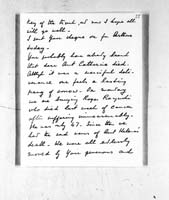 Key of the Road, et nous I hope all
will go well.
I sent your cheque on for Arthur
today.
You probably have already heard
that dear Aunt Catharine died.
Altho' it was a merciful deli-
verance one feels a tearing
pang of sorrow. On Monday
we are burying Roger
who died last week of Cancer
after suffering unmercifully.
He was only 47. Since then we
had the sad news of Aunt Helena's
death. We were all extremely
moved by your generous and